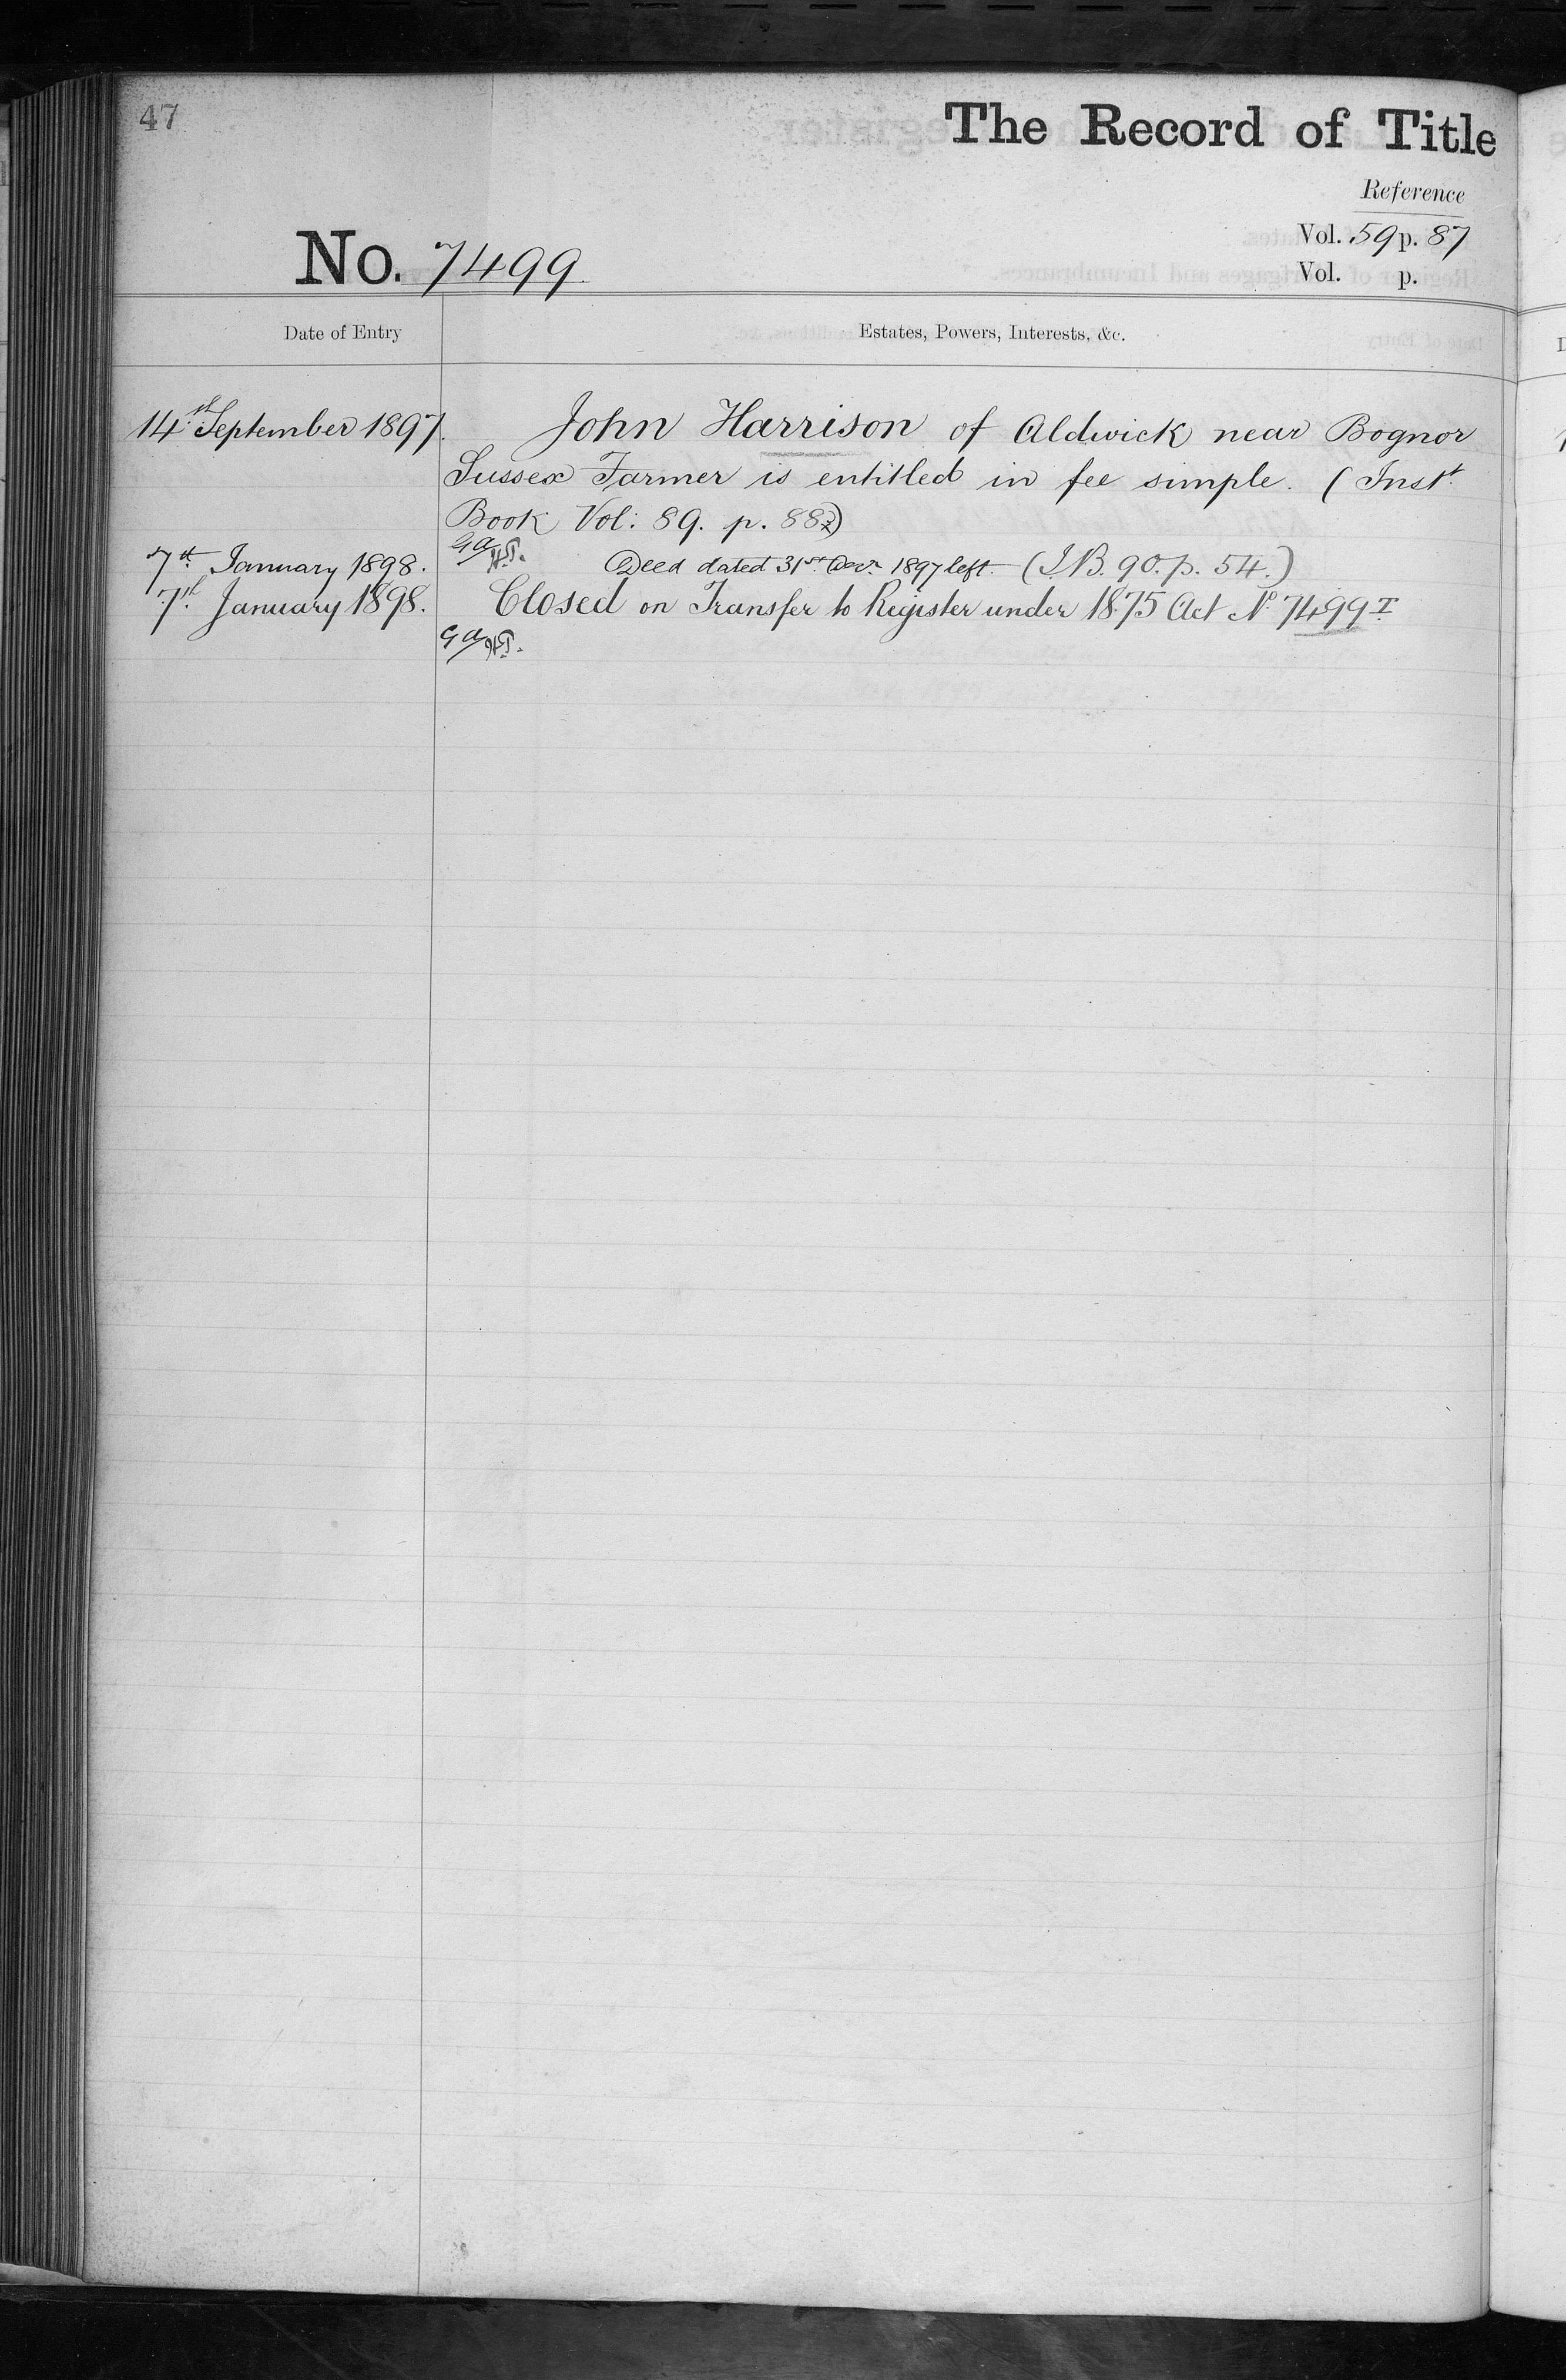 47
The Record of Title
Reference
Vol. 59 p. 87
No. 7499
Vol. p.
Date of Entry Estates, Powers, Interests, &c.
14th September 1897. John Harrison of Aldwick near Bognor
Sussex Farmer is entitled in fee simple. (Inst.
Book Vol: 89. p. 88)
7th January 1898. Deed dated 31st Decr. 1897 left (I.B. 90. p. 54.)
7th January 1898. Closed on Transfer to Register under 1875 Act No. 7499 I